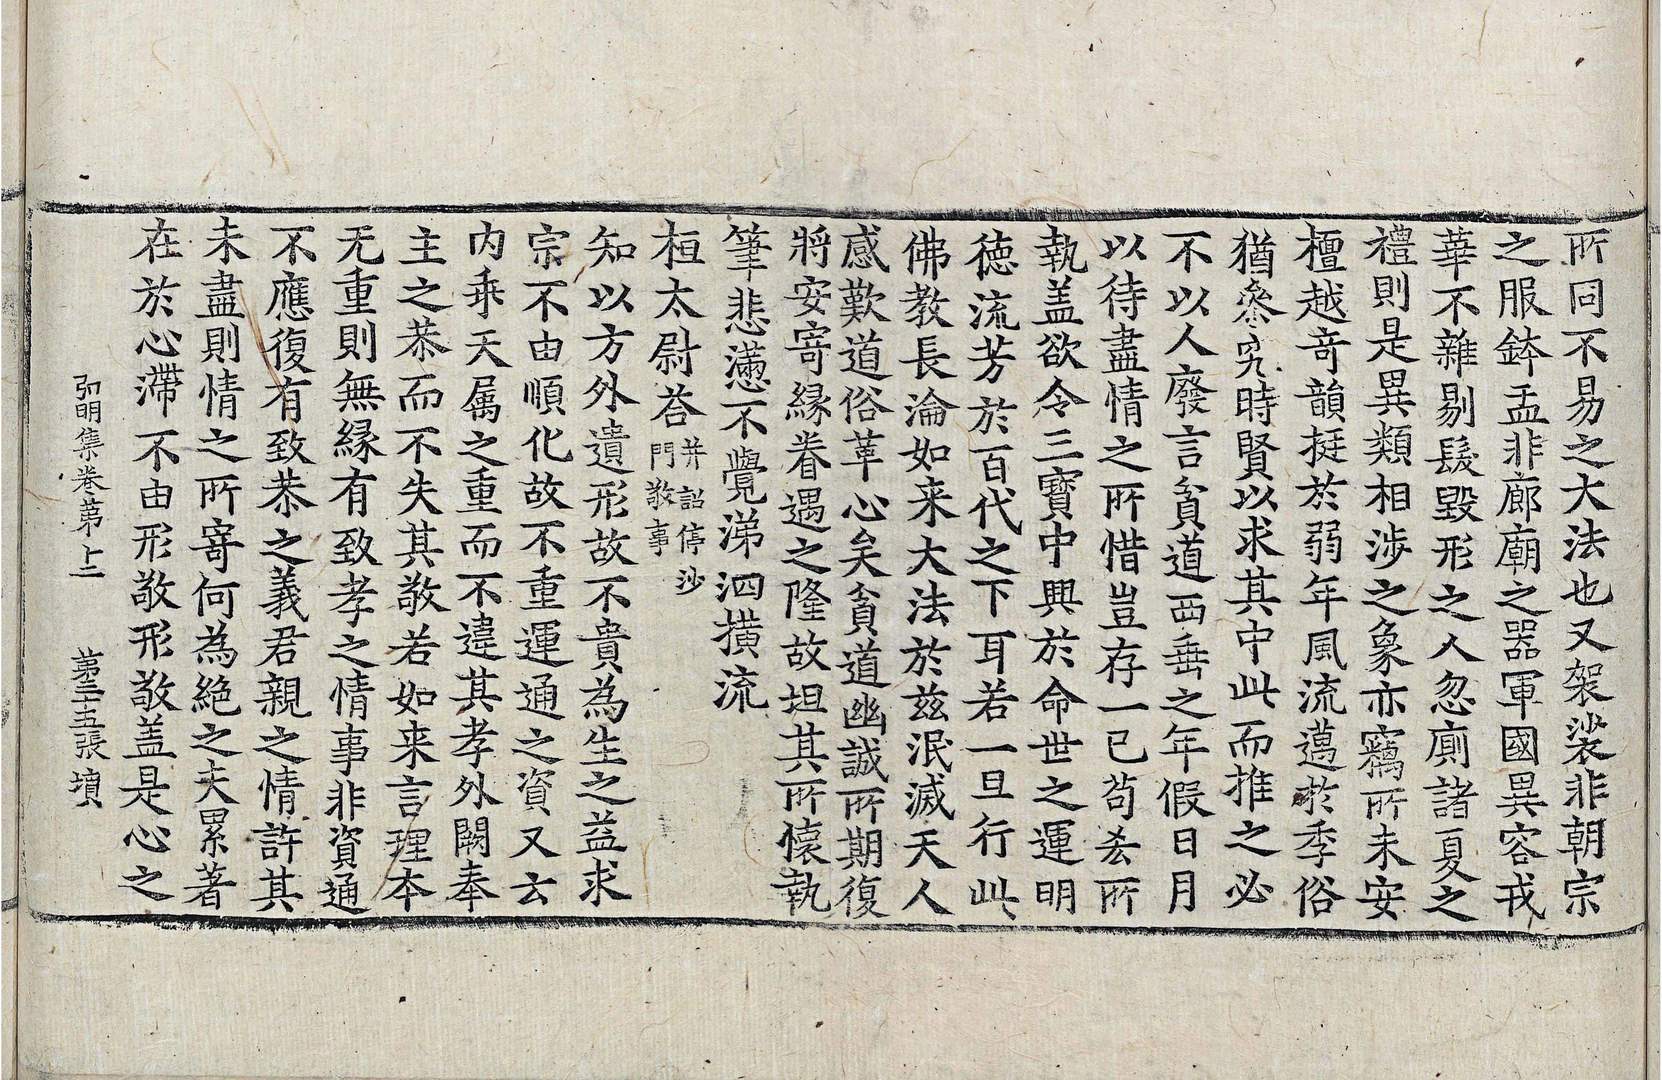 所同不易之大法也又袈裟非朝宗
之服鉢盂非廊廟之器軍國異容戎
華不雜剔髮毀形之人忽廁諸夏之
禮則是異類相涉之象亦竊所未安
檀越奇韻挺於弱年風流邁於季俗
猶參究時賢以求其中此而推之必
不以人廢言貧道西垂之年假日月
以待盡情之所惜豈存一已苟呑所
執盖欲令三寶中興於命世之運明
徳流芳於百代之下耳若一旦行此
佛教長淪如来大法於兹泯滅天人
感歎道俗革心矣貧道幽誠所期復
將安寄緣眷遇之隆故坦其所懷執
筆悲懣不覺涕泗橫流
桓太尉荅 并詔停沙門敬事
知以方外遺形故不貴為生之益求
宗不由順化故不重運通之資又云
内乖天属之重而不違其孝外闕奉
主之恭而不失其敬若如来言理本
无重則無緣有致孝之情事非資通
不應復有致恭之義君親之情許其
未盡則情之所寄何為絶之夫累著
在於心滯不由形敬形敬盖是心之
弘明集卷第十二 第三十五張 墳